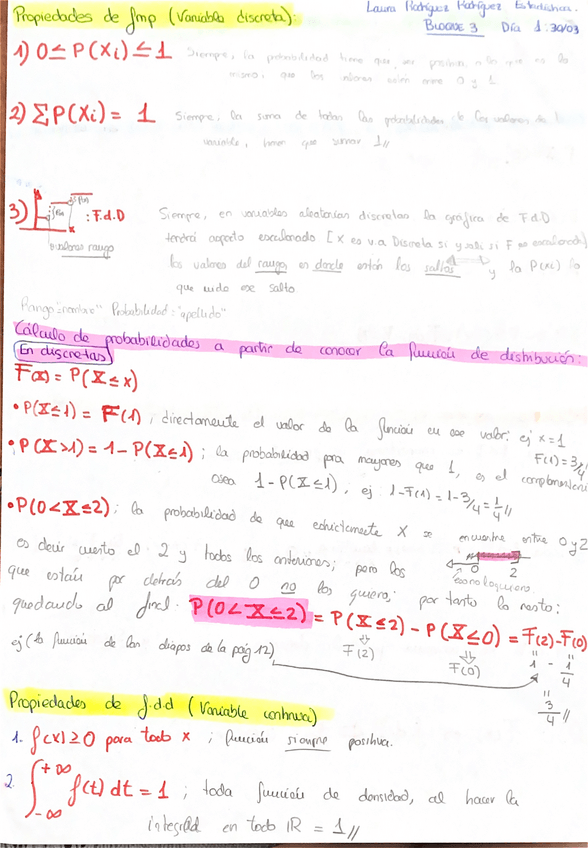 Propiedades de fmp (Variable discreta):
Laura Rodríguez Rodríguez Estadística.
BLOQUE 3 Día 1:30/03
1) 0 ≤ P(Xi) ≤ 1 Siempre, la probabilidad tiene que ser positiva o lo que es lo
mismo, que los valores estén entre 0 y 1
2) ∑P(Xi) = 1 Siempre, la suma de todas las probabilidades de los valores de la
variable, tienen que sumar 1//
3) : F.d.D Siempre, en variables aleatorias discretas la gráfica de F.d.D
tendrá aspecto escalonado [X es v.a Discreta si y solo si F es escalonada]
valores rango
los valores del rango, es donde están los saltos y la P(xi) lo
que mide ese salto.
Rango "nombre" Probabilidad: "apellido"
Cálculo de probabilidades a partir de conocer la función de distribución:
En discretas
F(x) = P(X ≤ x)
• P(X≤1) = F(1), directamente el valor de la función en ese valor: ej x=1
F(1) = 3/4
• P(X>1) = 1 - P(X≤1); la probabilidad para mayores que 1, es el complementario
osea 1 - P(X≤1), ej: 1-F(1) = 1-3/4 = 1/4//
• P(0<X≤2): la probabilidad de que estrictamente X se encuentre entre 0 y 2
es decir cuento el 2 y todos los anteriores; pero los
0 2
que están por detrás del 0 no los quiero; por tanto lo resto;
Eso no lo quiero.
quedando al final: P(0<X≤2) = P(X≤2) - P(X≤0) = F(2)-F(0)
F(2) F(0)
ej (la función de las diapos de la pág 12)
1 - 1/4
3/4//
Propiedades de f.d.d (Variable continua)
1. f(x) ≥ 0 para todo x; función siempre positiva.
2. ∫ -∞ +∞ f(t) dt = 1; toda función de densidad, al hacer la
integral en todo ℝ = 1//